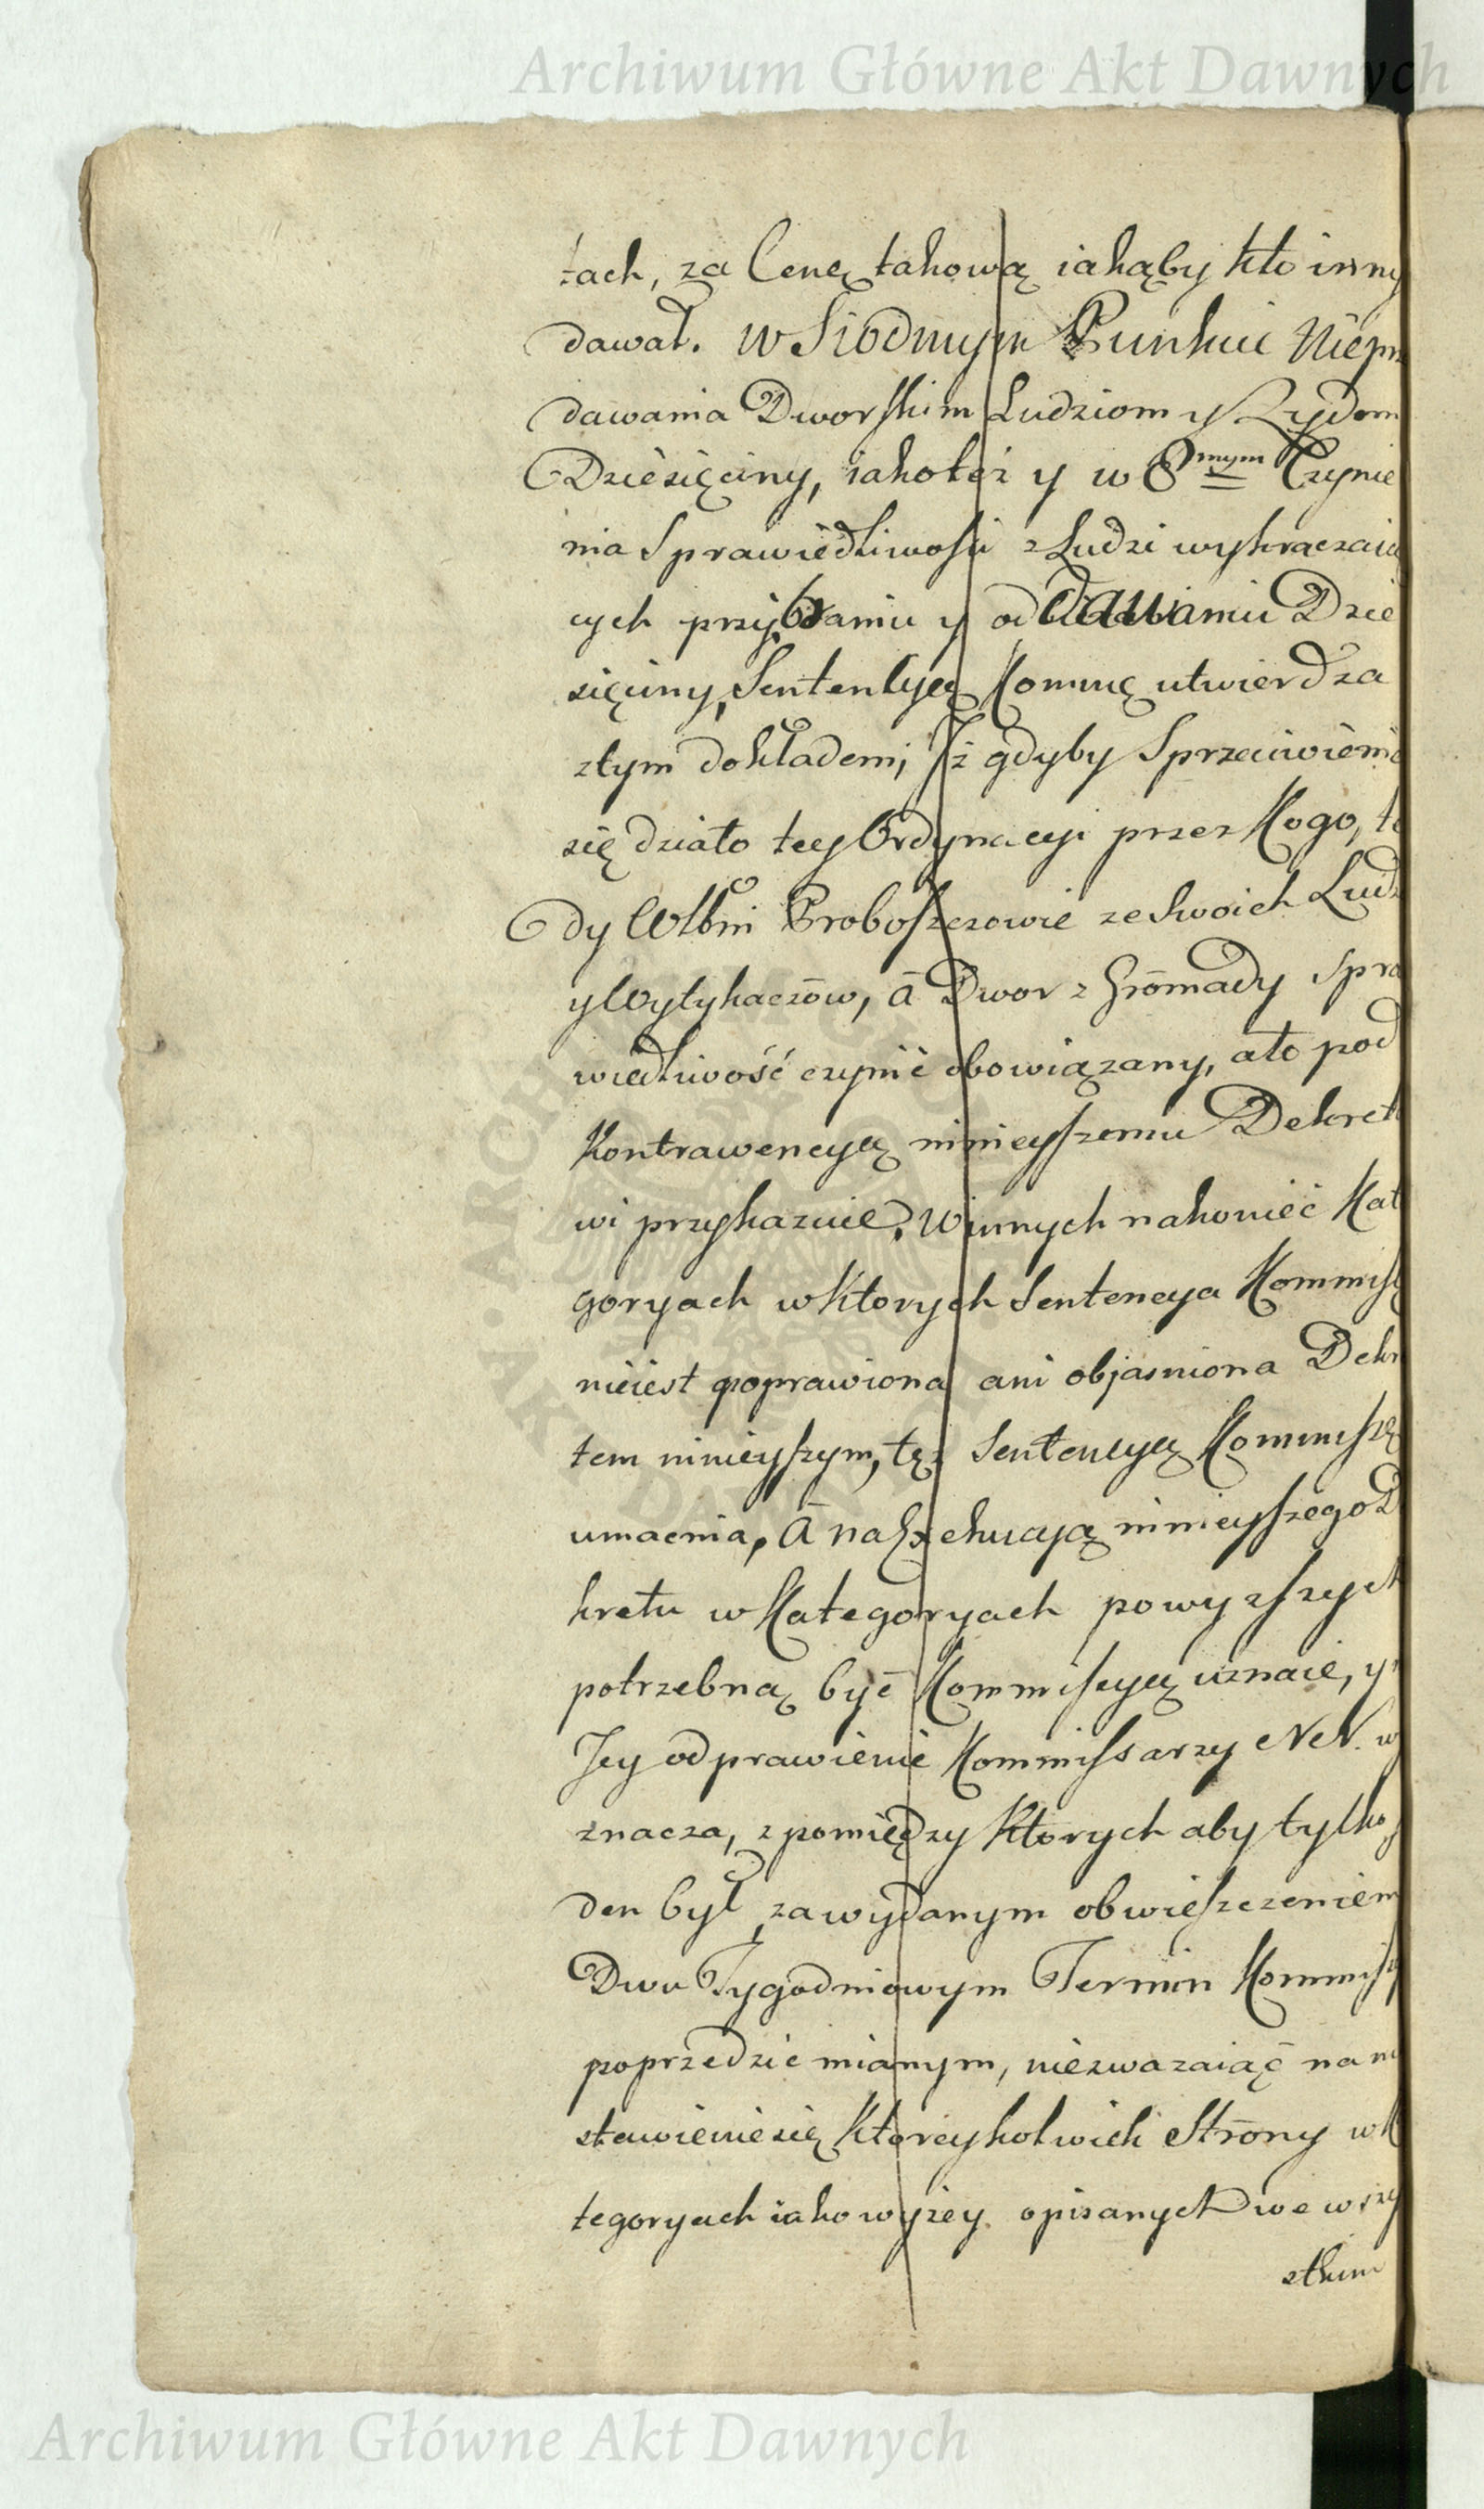 Archiwum Główne Akt Dawnych
tach, za Cenę takową iakąby kto inny
dawał. w Siodmym Punkcie Niepr
dawania Dworskim Ludziom y Zydom
Dziesięciny, iakoteż y w 8mym Czynie
nia Sprawiedliwości z Ludzi wykraczaią
cych przy braniu y oddawaniu Dzie
sięciny, Sentencyą Kommę utwierdza
z tym dokładem, Iż gdyby Sprzeciwienie
się działo tey Ordynacyi przez Kogo, te
dy Wlbni Proboszczowie ze Swoich Ludz
y Wytykaczów, á Dwor z Gromady Spra
wiedliwość czynić obowiązany, a to pod
Kontrawencyą ninieyszemu Dekreto
wi przykazuie. W innych nakoniec Kat
goryach w Ktorych Sentencya Kommiss
nieiest poprawiona ani objasniona Dekr
tem ninieyszym, tęż Sentencyą Kommissą
umacnia, á na Exekucyą ninieyszego D
kretu w Kategoryach powyzszych
potrzebną być Kommissyą uznaie, y n
Jey odprawienie Kommissarzy NN. w
znacza, z pomiędzy Ktorych aby tylko j
den był, za wydanym obwieszczeniem
Dwu Tygodniowym Termin Kommiss
poprzedzić mianym, niezwazaiąc na ni
stawienie się Ktoreykolwiek Strony w K
tegoryach iako wyżey opisanych we wszy
stkim
ARCHIWUM GŁÓWNE AKT DAWNYCH
Archiwum Główne Akt Dawnych